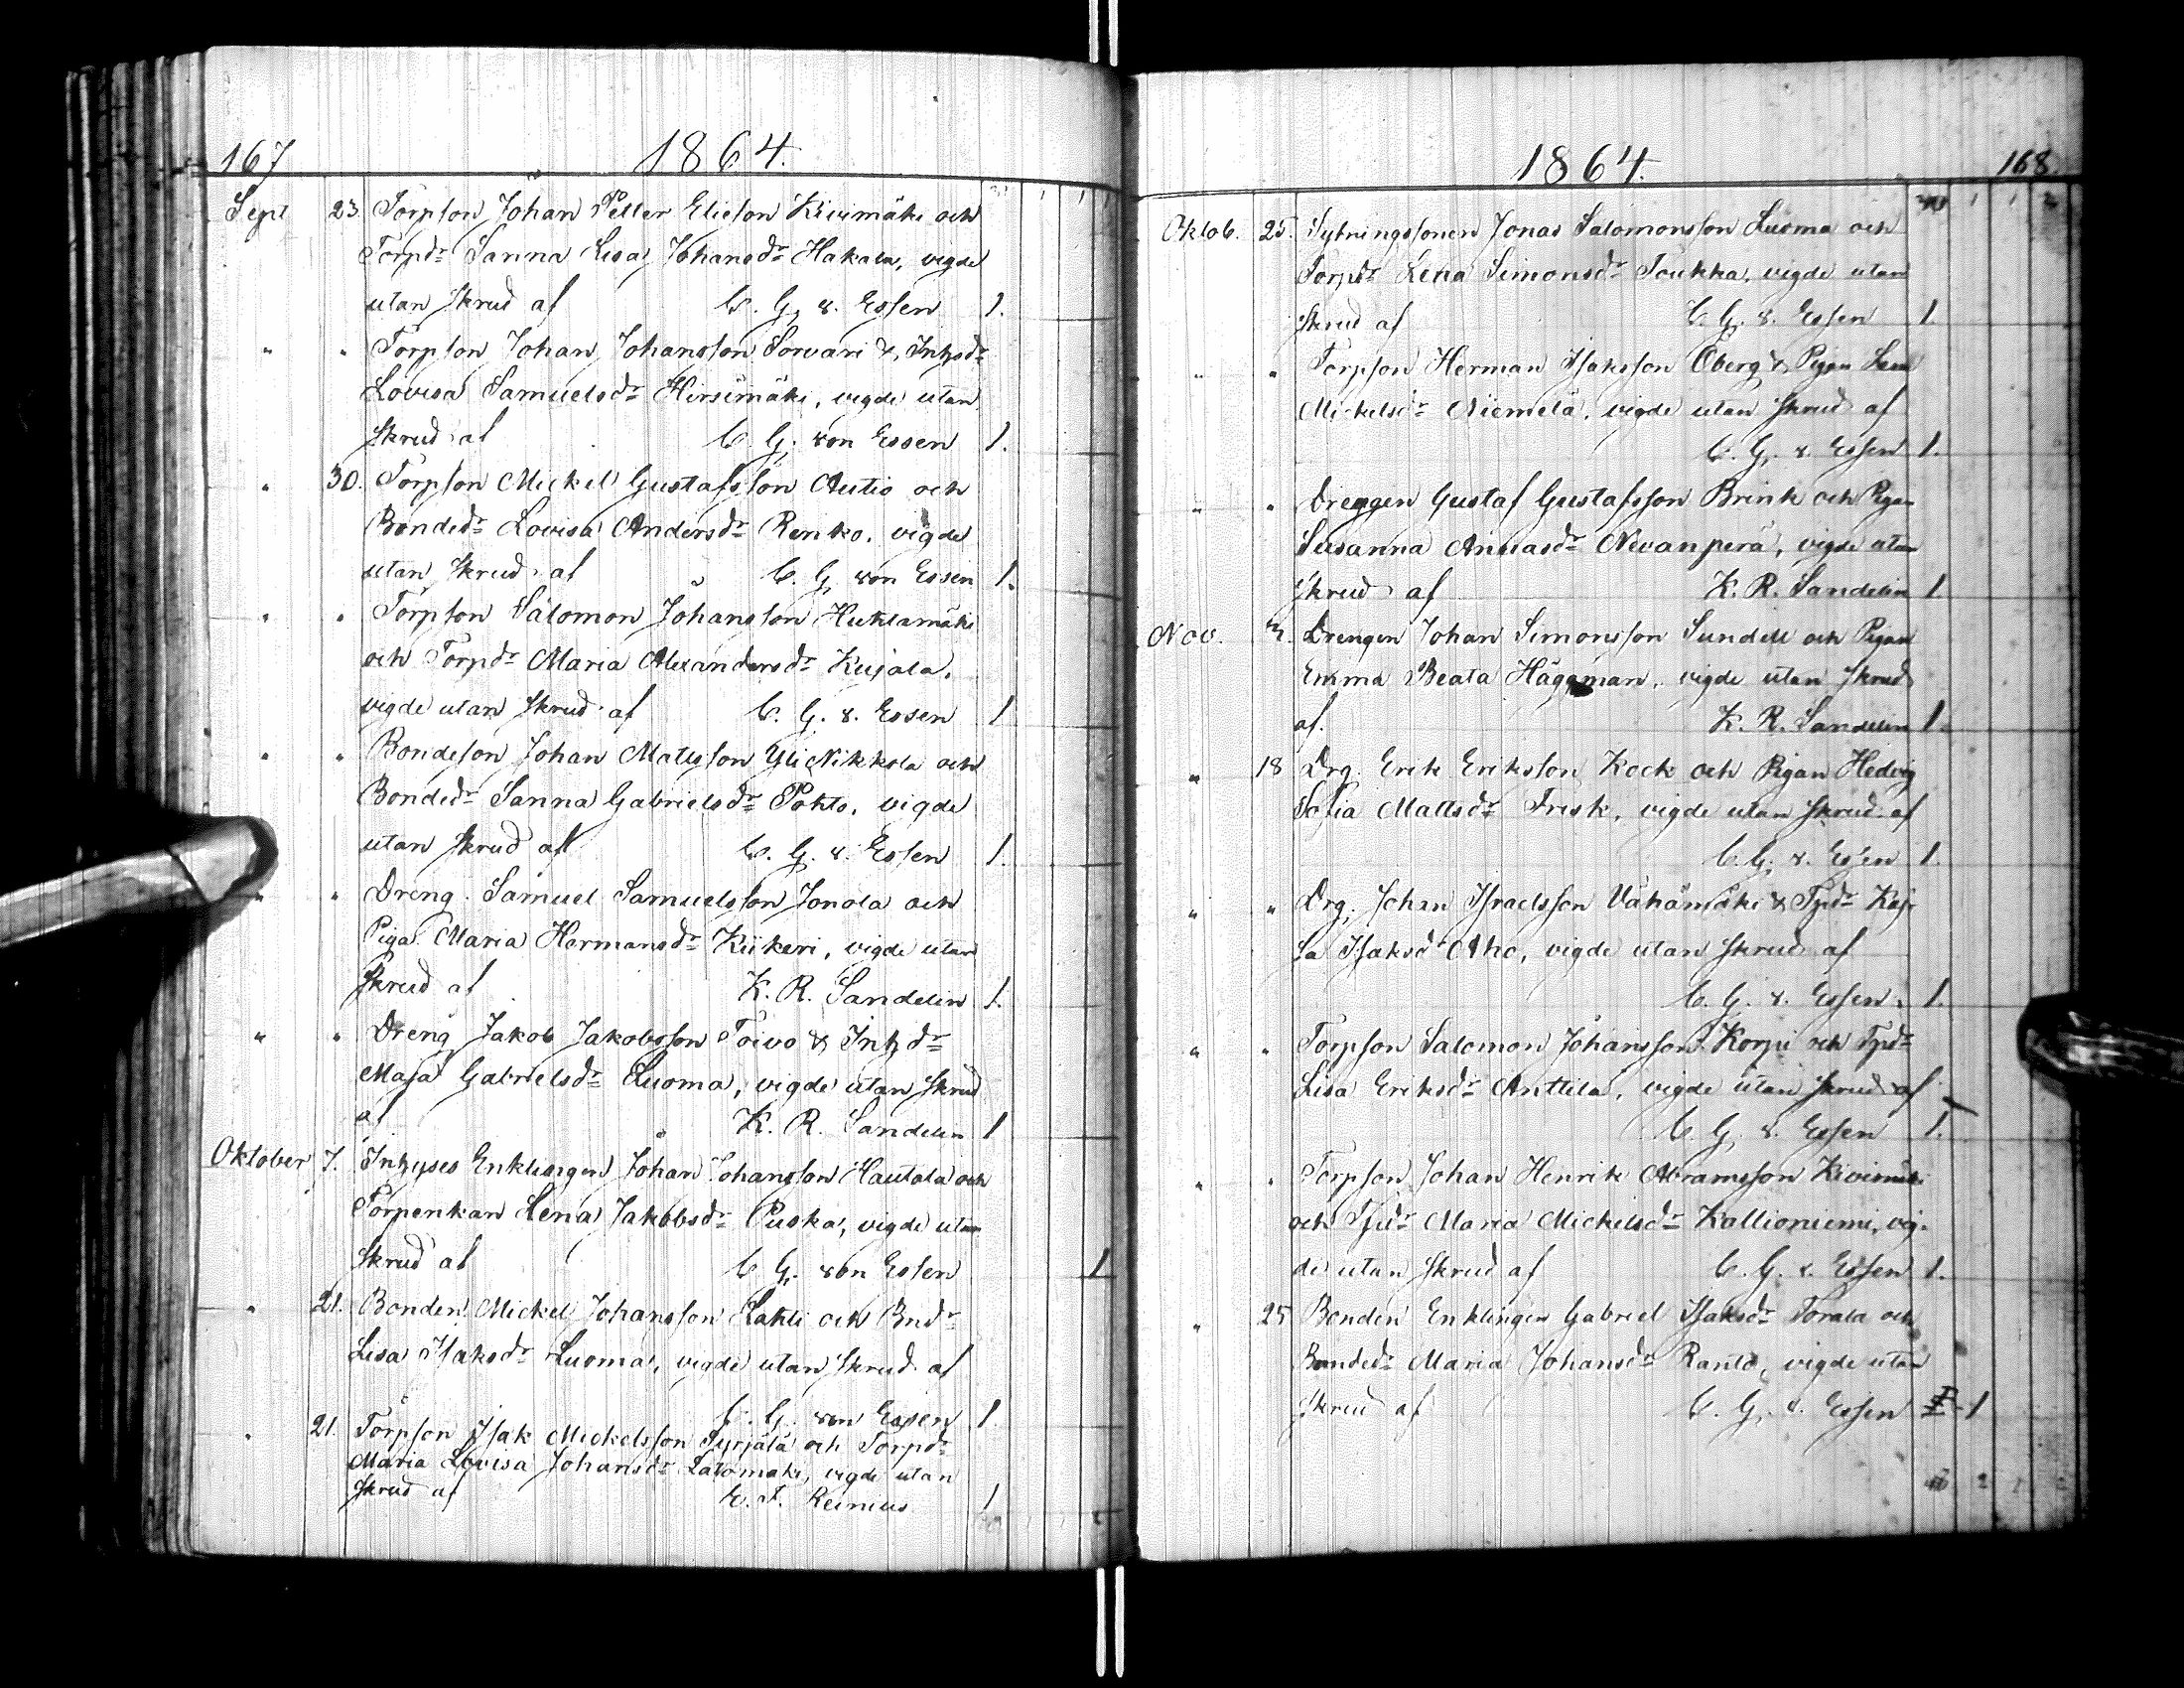 167 1864.
Sept 23. Torpson Johan Petter Elieson Kivimäki och
Torpdr Sanna Lisa Johansdr Hakala, vigde
utan skrud af C. G. v. Essen 1.
" " Torpson Johan Johansson Sorvari & Inhysdr
Lovisa Samuelsdr Hirsimäki, vigde utan
skrud af C. G. von Essen 1.
" 30. Torpson Mickel Gustafsson Autio och
Bondedr Lovisa Andersdr Renko, vigde
utan skrud af C. G. von Essen 1.
" " Torpson Salomon Johansson Huhtamäki
och Torpdr Maria Alexandersdr Kujala,
vigde utan skrud af C. G. v. Essen 1
" " Bondeson Johan Mattsson YliNikkola och
Bondedr Sanna Gabrielsdr Pohto, vigde
utan skrud af C. G. v. Essen 1.
" " Dreng. Samuel Samuelsson Jonola och
Piga Maria Hermansdr Kiikeri, vigde utan
skrud af K. R. Sandelin 1.
" " Dreng Jakob Jakobsson Toivo & Inhdr
Maja Gabrielsdr Luoma, vigde utan skrud
af K. R. Sandelin 1
Oktober 7. Inhyses Enklingen Johan Johansson Hautala och
Torpenkan Lena Jakobsdr Puska, vigde utan
skrud af C G. von Essen 1
" 21. Bonden Mickel Johansson Lahti och Bndr
Lisa Isaksdr Luoma, vigde utan skrud af
C. G. von Essen 1
" 21. Torpson Isak Mickelsson Syrjälä och Torpdr
Maria Lovisa Johansdr Latomäki, vigde utan
skrud af E. F. Reinius 1
1864. 168.
Oktob. 25. Sytningssonen Jonas Salomonsson Luoma och
Torpdr Lena Simonsdr Toukka, vigde utan
skrud af C. G. v. Essen 1.
" " Torpson Herman Isaksson Öberg & Pigan Lena
Mickelsdr Niemelä, vigde utan skrud af
C. G. v. Essen 1.
" " Drengen Gustaf Gustafsson Brink och Pigan
Susanna Annasdr Nevanperä, vigde utan
skrud af K. R. Sandelin 1.
Nov. Drengen Johan Simonsson Sundell och Pigan
Emma Beata Häggman, vigde utan skrud
af. K. R. Sandelin 1.
" 18 Drg. Erik Eriksson Kock och Pigan Hedvig
Sofia Mattsdr Frisk, vigde utan skrud af
C. G. v. Essen 1.
" " Drg. Johan Israelsson Vähämäki & Tpdr Kaj-
sa Isaksd Aho, vigde utan skrud af
C. G. v. Essen. 1.
" " Torpson Salomon Johansson Korpi och Tpdr
Lisa Eriksdr Anttila, vigde utan skrud af
C. G. v. Essen 1.
" " Torpson Johan Henrik Abramsson Kivimäki
och Tpdr Maria Mickelsdr Kallioniemi, vig-
de utan skrud af C. G. v. Essen 1.
" 25 Bonden Enklingen Gabriel Isaksdr Torala och
Bondedr Maria Johansdr Ranto, vigde utan
skrud af C. G. v. Essen 1